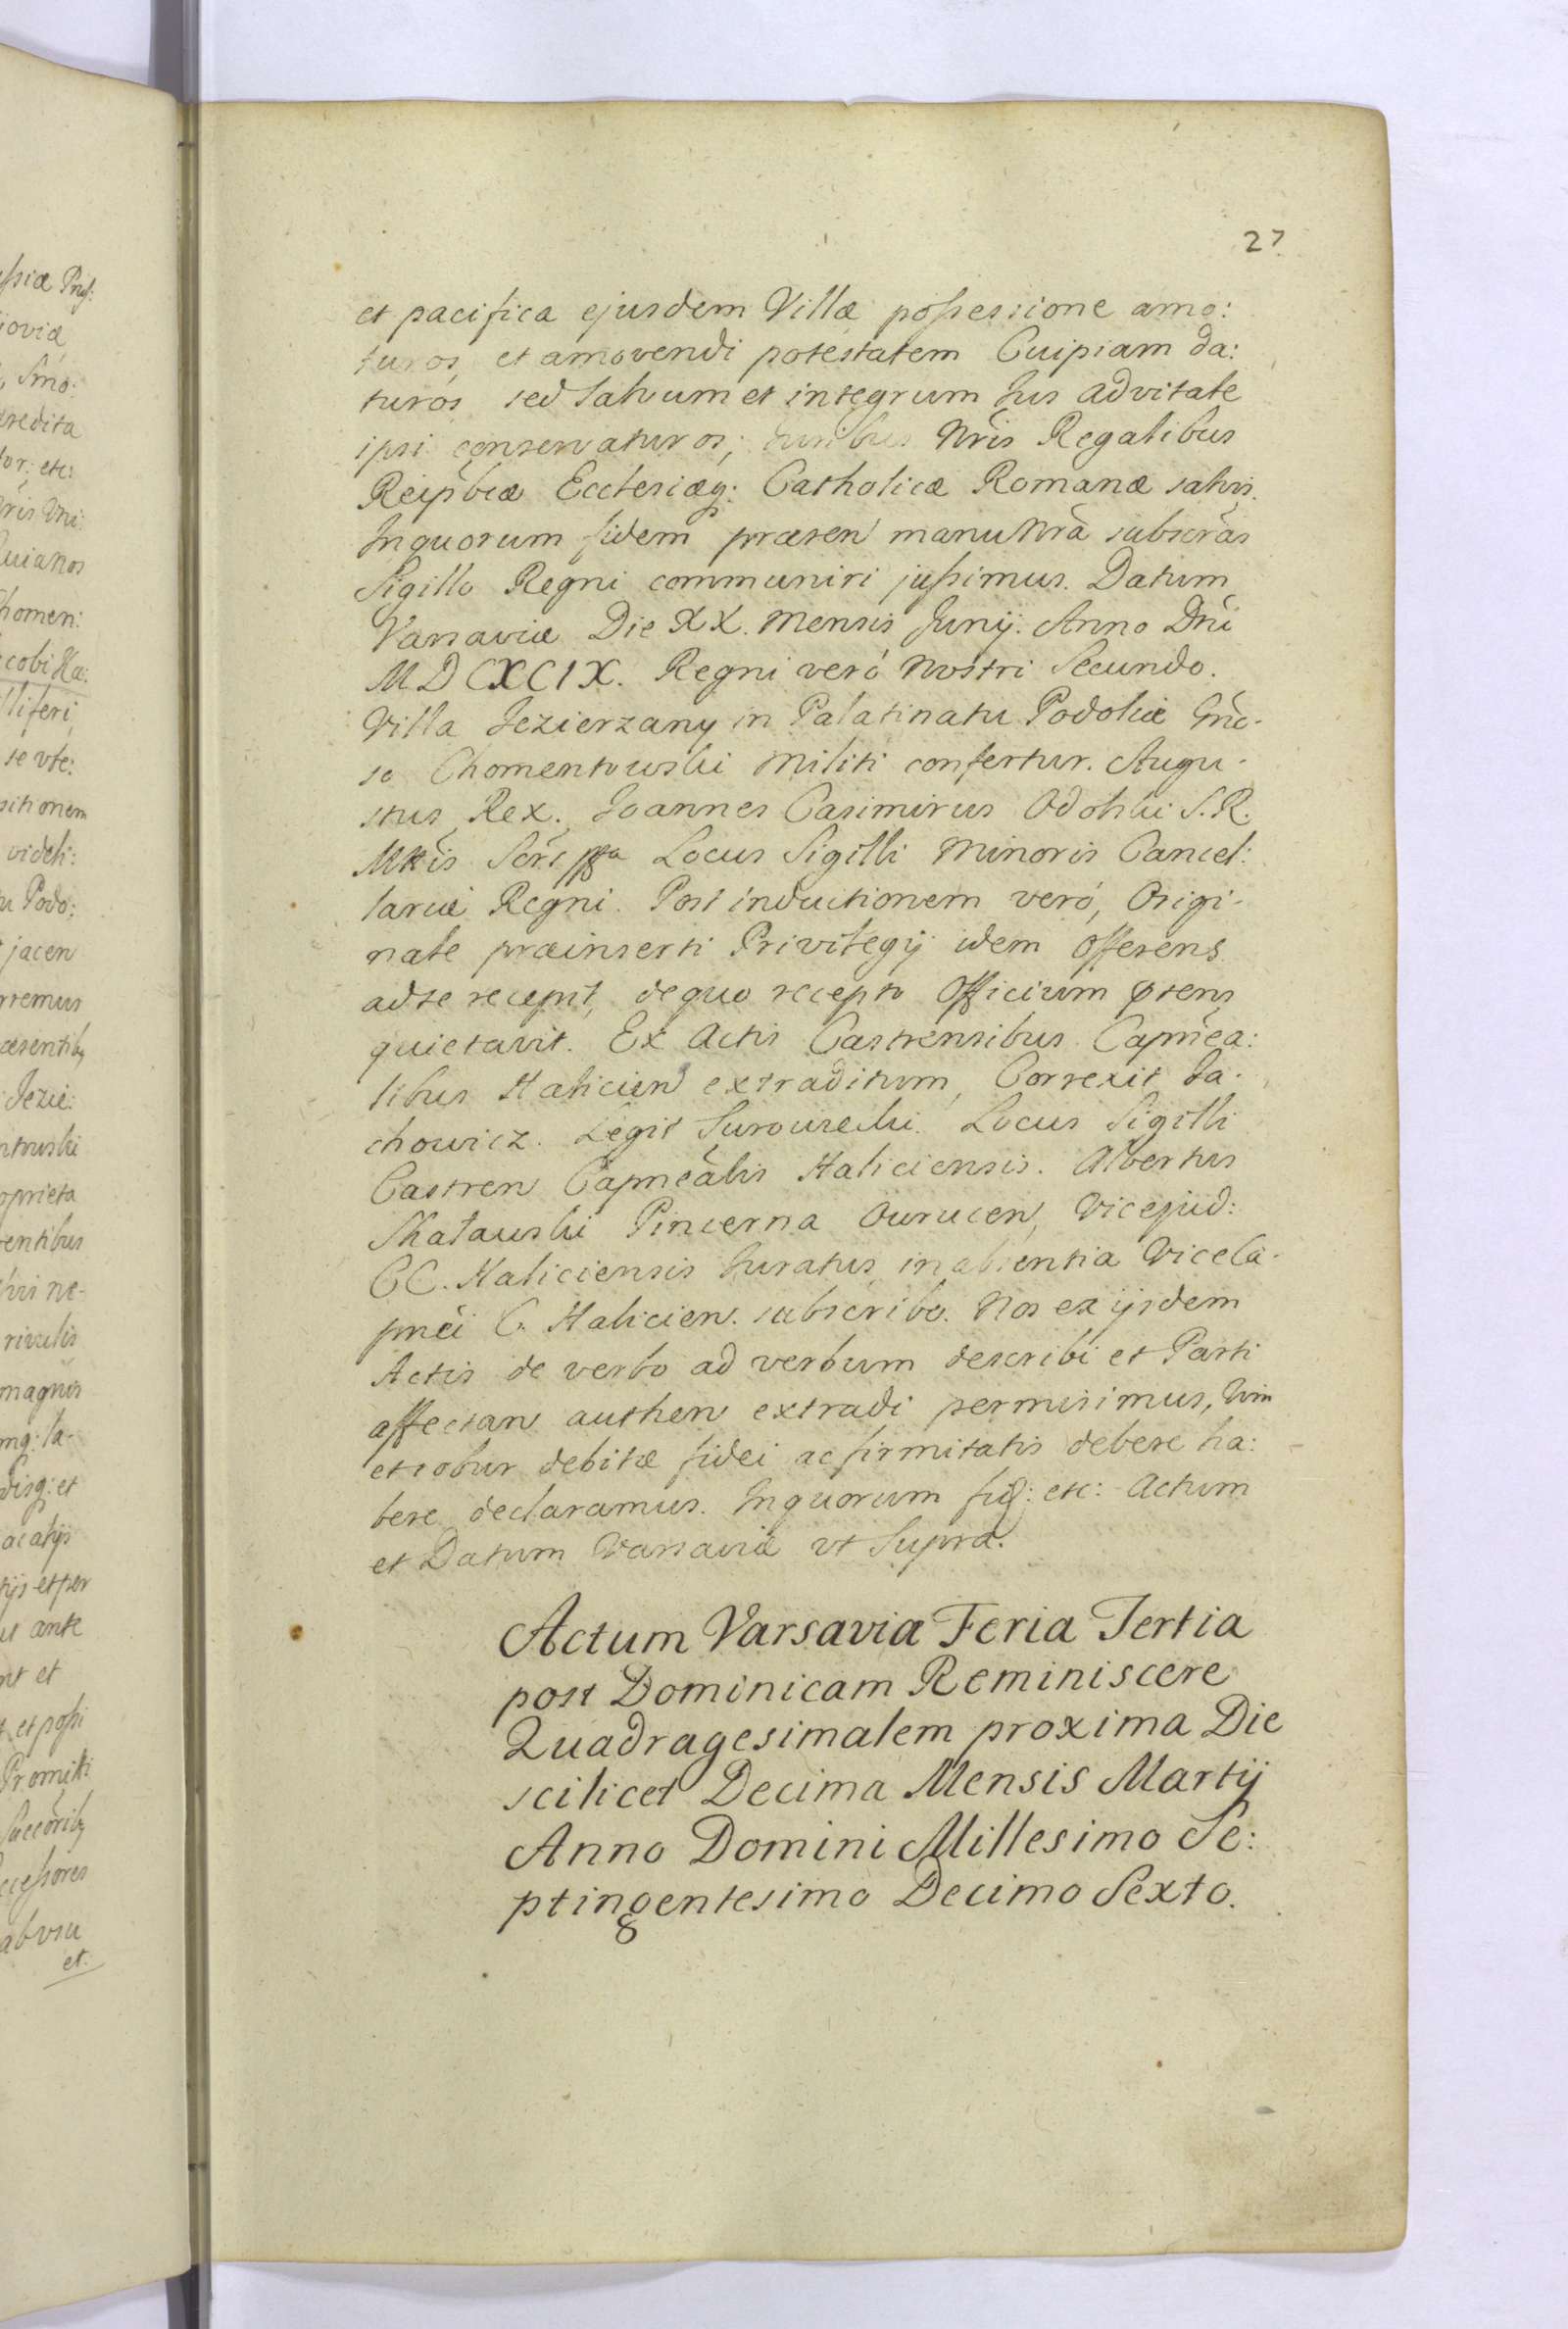 27
et pacifica ejusdem Villæ possessione amo:
turos, et amovendi potestatem Cuipiam da:
turos sed salvum et integrum Jus advitale
ipsi conservaturos; Juribus Nris Regalibus
Reipbcæ Ecclesiæq: Catholicæ Romanæ salvis.
Inquorum fidem præsen manu Nrã subscras
Sigillo Regni communiri jussimus. Datum
Varsaviæ Die XX. Mensis Junij. Anno Dni
MDCXCIX. Regni veró Nostri Secundo.
Villa Jezierzany in Palatinatu Podoliæ Gnõ-
so Chomentowski Militi confertur. Augu-
stus Rex. Joannes Casimirus Odolski S.R.
Mttis Locus Sigilli Minoris Cancel:
lariæ Regni. Post inductionem veró, Origi-
nale præinserti Privilegij idem Offerens
adse recepit, dequo recepto Officium
quietavit. Ex Actis Castrensibus Capnea:
libus Halicien extraditum, Correxit Ja-
chowicz. Legit Surowiecki. Locus Sigilli
Castren Capnealis Haliciensis. Albertus
Skatawski Pincerna Owrucen, Vicejud:
CC. Haliciensis Juratus, in absentia Viceca-
pnei C. Halicien. subscribo. Nos ex ijsdem
Actis de verbo ad verbum describi et Parti
affectan authen extradi permisimus,
et robur debitæ fidei ac firmitatis debere ha:
bere declaramus. Inquorum fid: etc: Actum
et Datum Varsaviæ vt Supra.
Actum Varsaviæ Feria Tertia
post Dominicam Reminiscere
Quadragesimalem proxima Die
scilicet Decima Mensis Martij
Anno Domini Millesimo Se:
ptingentesimo Decimo Sexto.